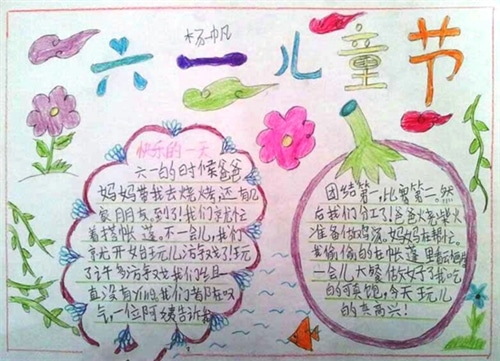 杨帆
六一儿童节
快乐的一天
六一的时候爸爸
妈妈带我去烧烤,还有几
家朋友,到了我们就忙
着搭帐篷。不一会儿,我们
就开始玩儿游戏了!玩
了许多游戏我们
真没有
气,一位阿姨告诉我
团结第一,比赛第二。然
后我们分工了!爸爸火柴火
准备做鸡蛋。妈妈在帮忙。
我偷偷的在帐篷里
一会儿大餐做好了我吃
的可真饱,今天玩儿
的真高兴!